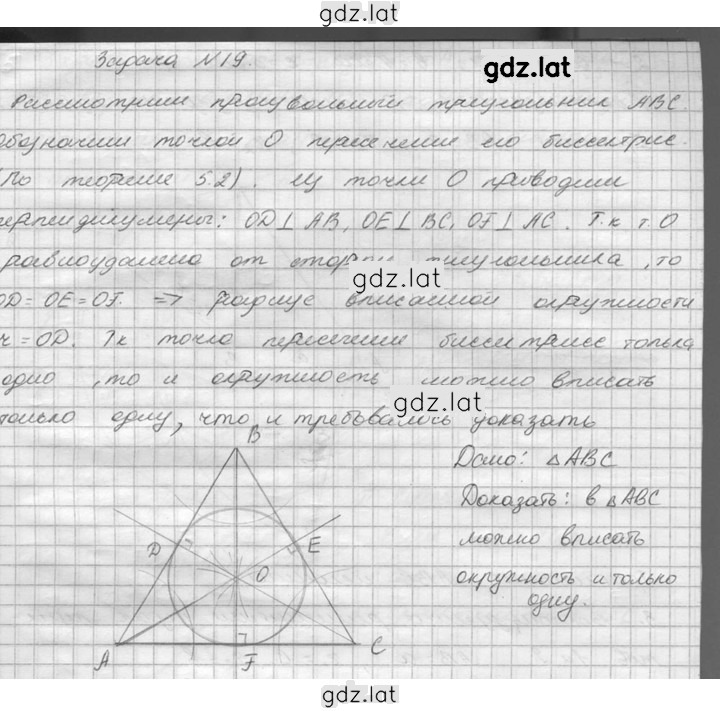 gdz.lat
Задача №19.
gdz.lat
Рассмотрим произвольный треугольник ABC.
Обозначим точкой O пересечение его биссектрис.
(По теореме 5.2). Из точки O проводим
перпендикуляры: OD⊥AB, OE⊥BC, OF⊥AC. Т.к т.O
равноудалена от сторон треугольника, то
gdz.lat
OD=OE=OF. => радиус вписанной окружности
r=OD. Тк точка пересечения биссектрисс только
одна, то и окружность можно вписать
gdz.lat
только одну, что и требовалось доказать
B
Дано: △ABC
Доказать: в △ABC
можно вписать
окружность и только
одну.
D
E
O
A
F
C
gdz.lat